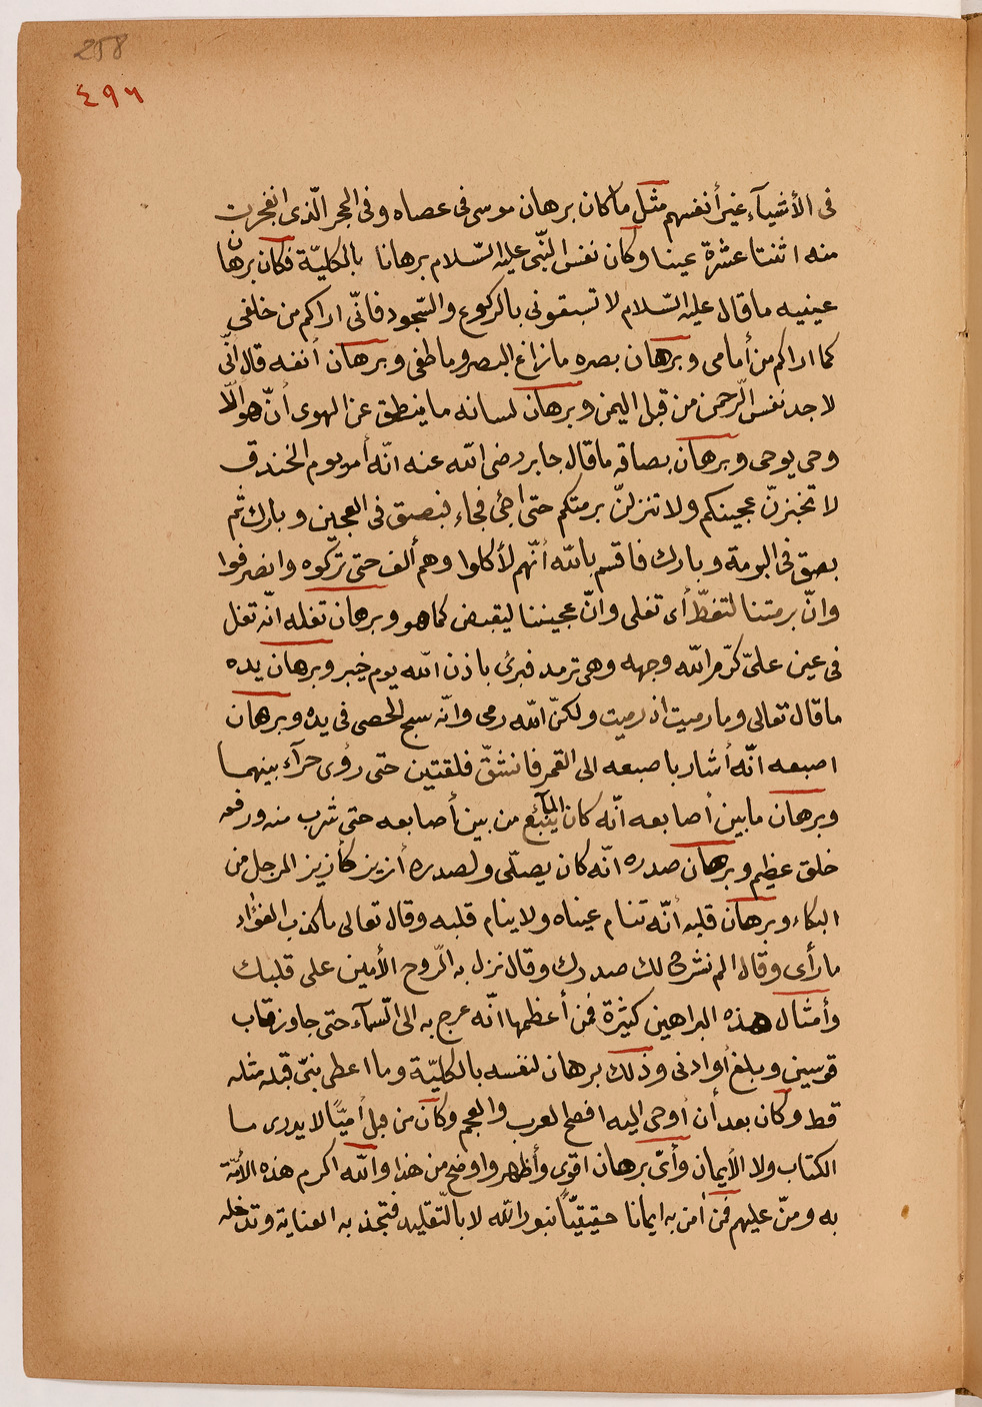 258
٤٩٦
فى الأشيآء غير أنفسهم مثل ما كان برهان موسى فى عصاه وفى الحجر الّذى انفجرت
منه اثنتا عشرة عينا وكان نفس النّبى عليه السّلام برهانا بالكليّة فكان برهان
عينيه ما قال عليه السّلام لا تسبقونى بالركوع والسّجود فانّى اراكم من خلفى
كما اراكم من أمامى وبرهان بصره ما زاغ البصر وما طغى وبرهان أنفه قال انّى
لاجد نفس الّرحمن من قبل اليمن وبرهان لسانه ما ينطق عن الهوى أنّ هو الّا
وحى يوحى وبرهان بصاقه ما قال جابر رضى الله عنه انّه أمر يوم الخندق
لا تخبزنّ عجينكم ولا تنزلنّ برمتكم حتى اجئ فجاء فبصق فى العجين وبارك ثم
بصق فى البرمة وبارك فاقسم بالله أنّهم لأكلوا وهم ألف حتى تركوه وانصرفوا
وانّ برمتنا لتغطّ أى تغلى وانّ عجيننا ليقبض كما هو وبرهان تفله انّه تفل
فى عين علىّ كرّم الله وجهه وهى ترمد فبرئ باذن الله يوم خيبر وبرهان يده
ما قال تعالى وما رميت اذ رميت ولكنّ الله رمى وانّه سبح الحصى فى يده وبرهان
اصبعه انّه أشار باصبعه الى القمر فانشقّ فلقتين حتى رؤى حرآء بينهما
وبرهان ما بين أصابعه انّه كان المآء ينبع من بين أصابعه حتى شرب منه ورفعه
خلق عظيم وبرهان صدره انّه كان يصلّى ولصدره أزيز كأزيز المرجل من
البكاء وبرهان قلبه أنّه تنام عيناه ولا ينام قلبه وقال تعالى ما كذب الفؤاد
ما رأى وقال الم نشرح لك صدرك وقال نزل به الّروح الأمين على قلبك
وأمثال هذه البراهين كثيرة فمن أعظمها انّه عرج به الى السّمآء حتى جاوز قاب
قوسين وبلغ أو ادنى وذلك برهان لنفسه بالكليّة وما اعطى نبىّ قبله مثله
قط وكان بعد أن أوحى اليه افصح العرب والعجم وكان من قبل أميّا لا يدرى ما
الكتاب ولا الأيمان وأىّ برهان اقوى وأظهر واوضح من هذا والله اكرم هذه الأمّة
به ومنّ عليهم فمن أمن به ايمانا حقيقيّا بنور الله لا بالّتقليد فتجذبه العناية وتدخله